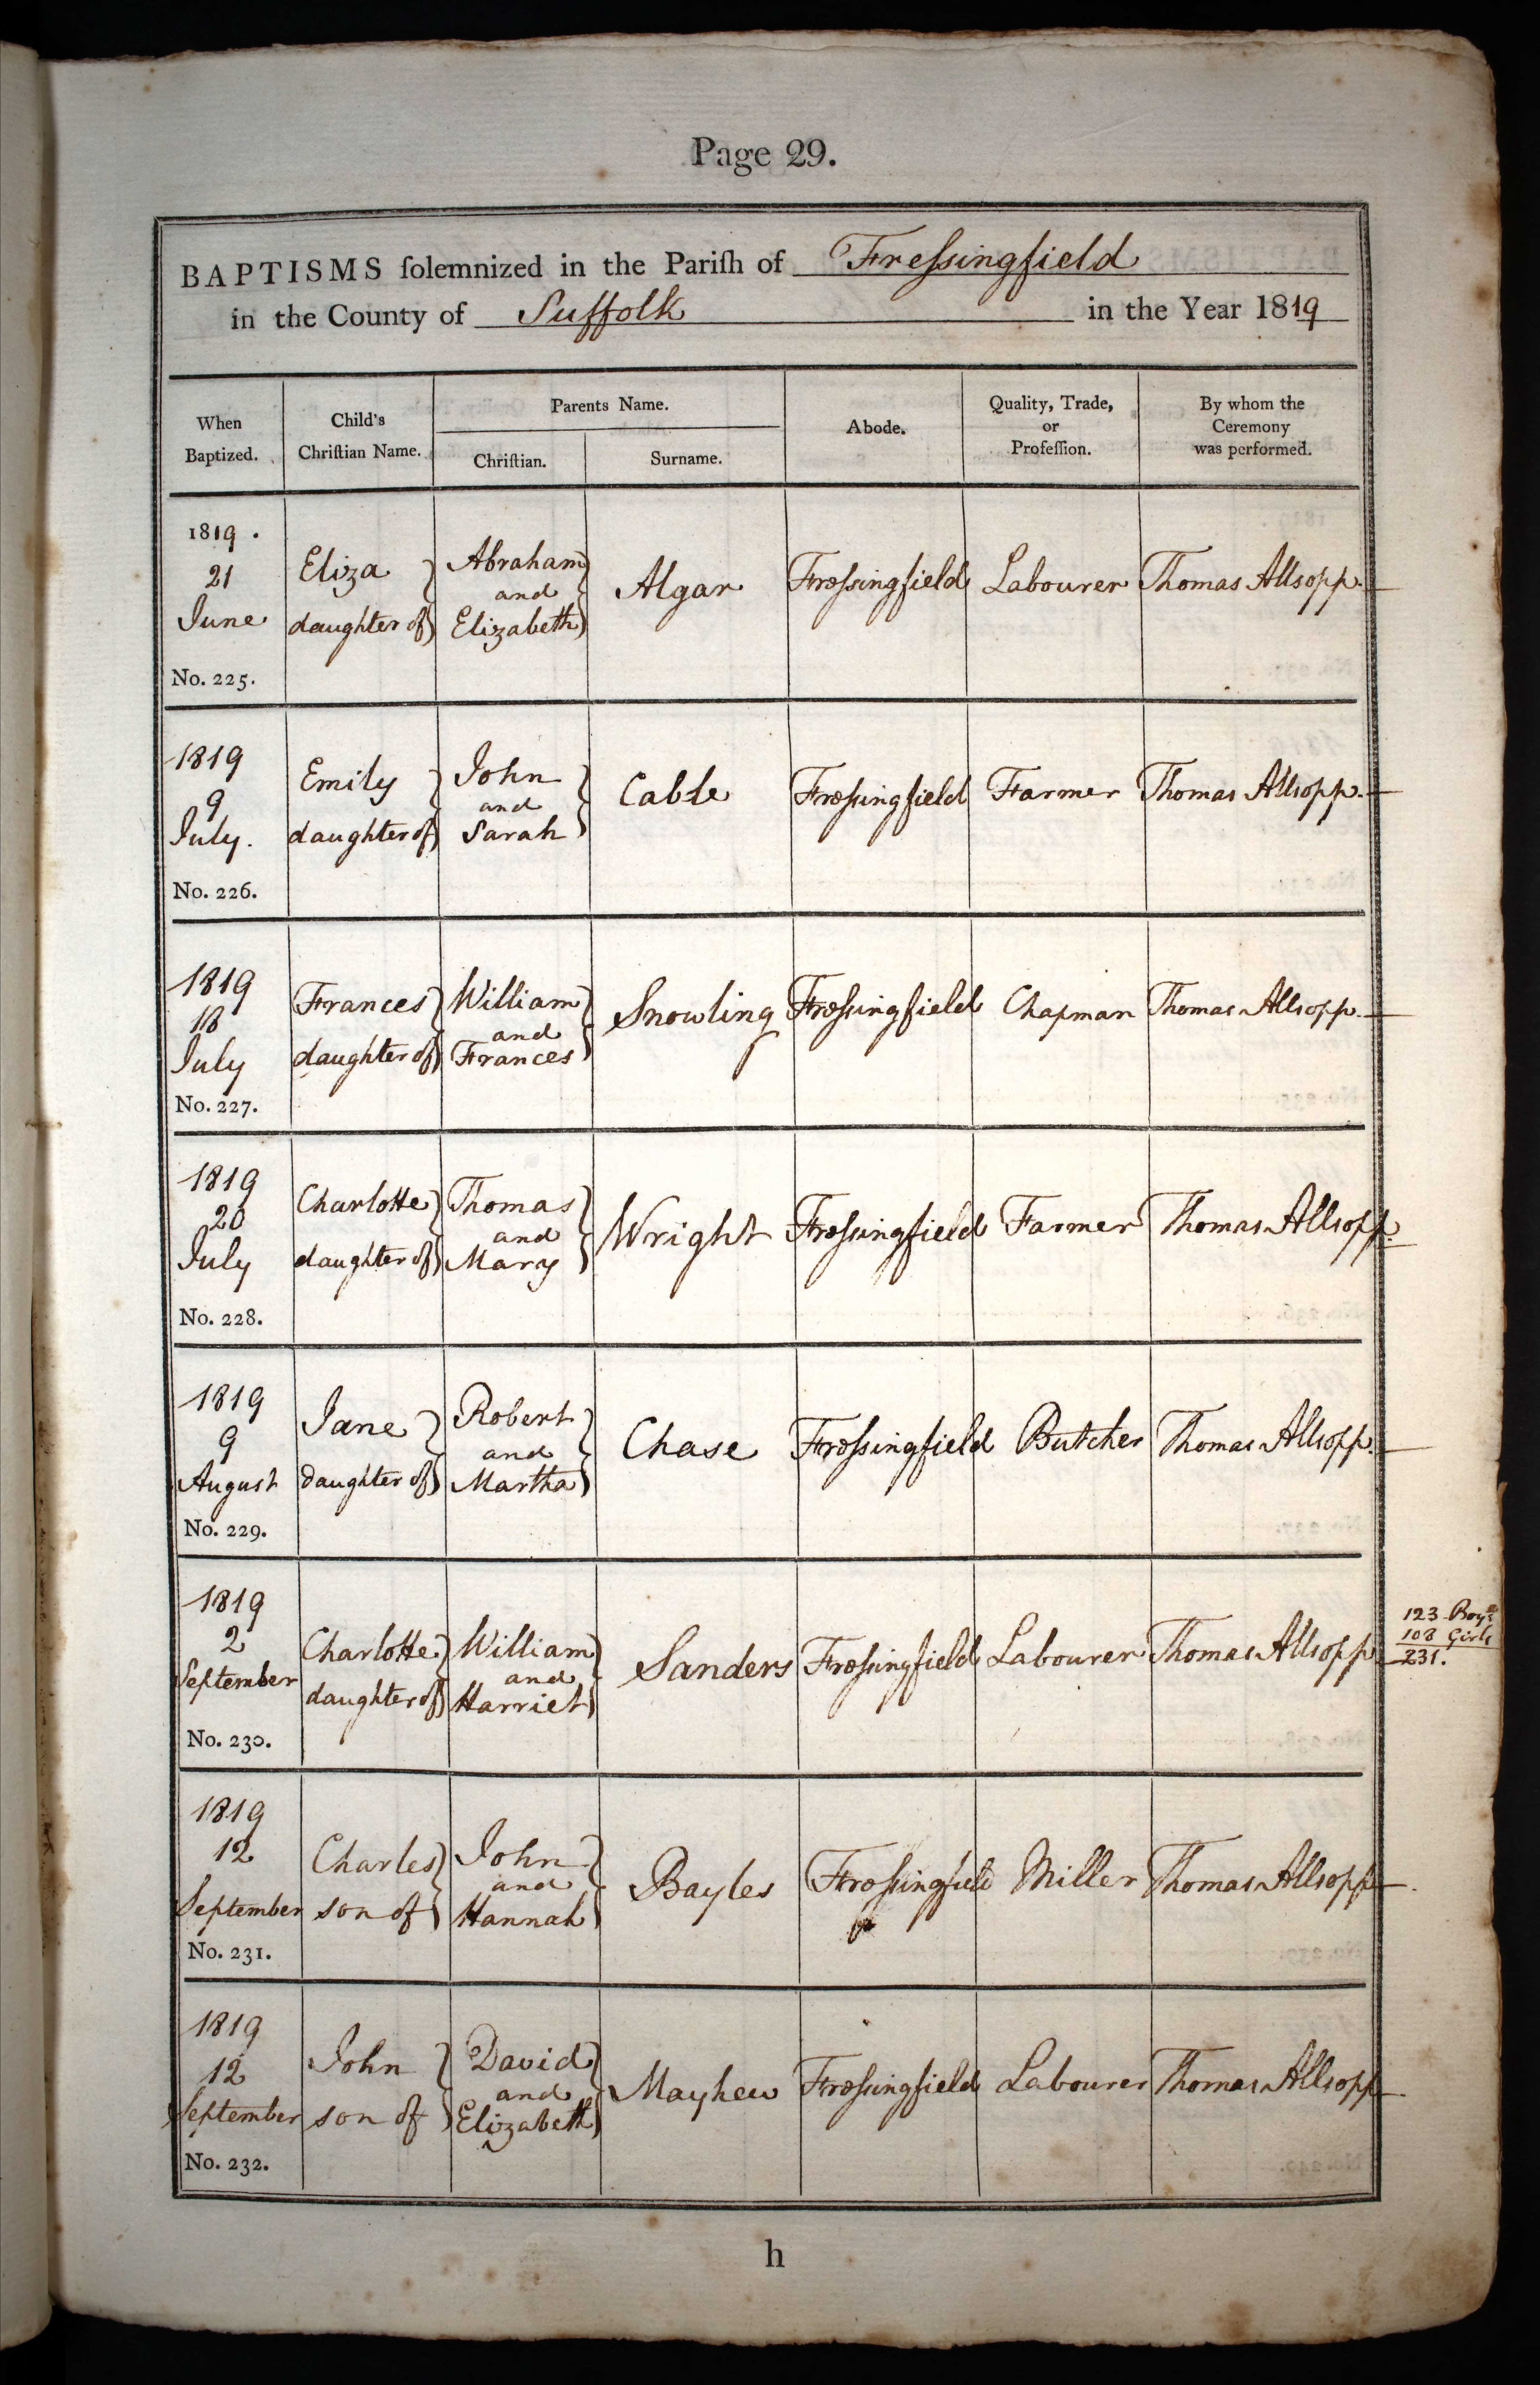 Page 29.
BAPTISMS ſolemnized in the Pariſh of Freſsingfield
in the County of Suffolk in the Year 1819
When Baptized.
Child's Chriſtian Name.
Parents Name.
Chriſtian.
Surname.
Abode.
Quality, Trade, or Profeſſion.
By whom the Ceremony was performed.
1819.
21
June
No. 225.
Eliza
daughter of
Abraham
and
Elizabeth
Algar
Freſsingfield
Labourer
Thomas Allsopp.
1819
9
July.
No. 226.
Emily
daughter of
John
and
Sarah
Cable
Freſsingfield
Farmer
Thomas Allsopp.
1819
18
July
No. 227.
Frances
daughter of
William
and
Frances
Snowling
Freſsingfield
Chapman
Thomas Allsopp.
1819
20
July
No. 228.
Charlotte
daughter of
Thomas
and
Mary
Wright
Freſsingfield
Farmer
Thomas Allsopp.
1819
9
August
No. 229.
Jane
daughter of
Robert
and
Martha
Chase
Freſsingfield
Butcher
Thomas Allsopp.
1819
2
September
No. 230.
Charlotte
daughter of
William
and
Harriet
Sanders
Freſsingfield
Labourer
Thomas Allsopp
123 Boys
108 Girls
231.
1819
12
September
No. 231.
Charles
son of
John
and
Hannah
Bayles
Freſsingfield
Miller
Thomas Allsopp
1819
12
September
No. 232.
John
son of
David
and
Elizabeth
Mayhew
Freſsingfield
Labourer
Thomas Allsopp
h